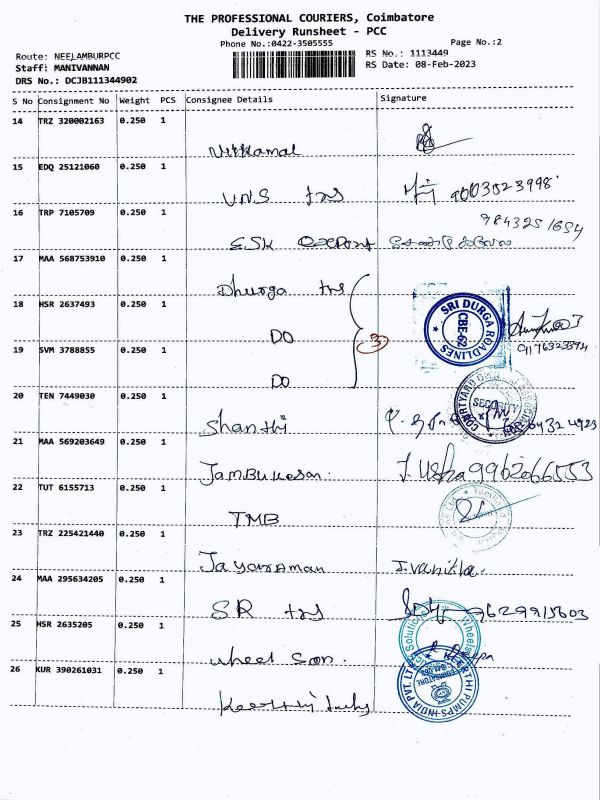 THE PROFESSIONAL COURIERS, Coimbatore
Delivery Runsheet - PCC
Phone No.:0422-3505555
Page No.:2
Route: NEELAMBURPCC
RS No.: 1113449
Staff: MANIVANNAN
RS Date: 08-Feb-2023
DRS No.: DCJB111344902
S No Consignment No Weight PCS Consignee Details Signature
14 TRZ 320002163 0.250 1
15 EDQ 25121060 0.250 1
V.N.S trs 9003023998
16 TRP 7105709 0.250 1
984325 1654
S.S.K
17 MAA 568753910 0.250 1
Dhurga trs
18 HSR 2637493 0.250 1
DO
SRI DURGA ROADLINES
CBE-62
3
19 SVM 3788855 0.250 1
DO
20 TEN 7449030 0.250 1
Shanthi
SECURITY
21 MAA 569203649 0.250 1
Jambukesan. J. Usha 9962066553
22 TUT 6155713 0.250 1
TMB
23 TRZ 225421440 0.250 1
Jayaraman J. vanitha.
24 MAA 295634205 0.250 1
S.R trs 9629915603
25 HSR 2635205 0.250 1
wheel Son.
26 KUR 390261031 0.250 1
KEERTHI PUMPS-INDIA PVT. LTD